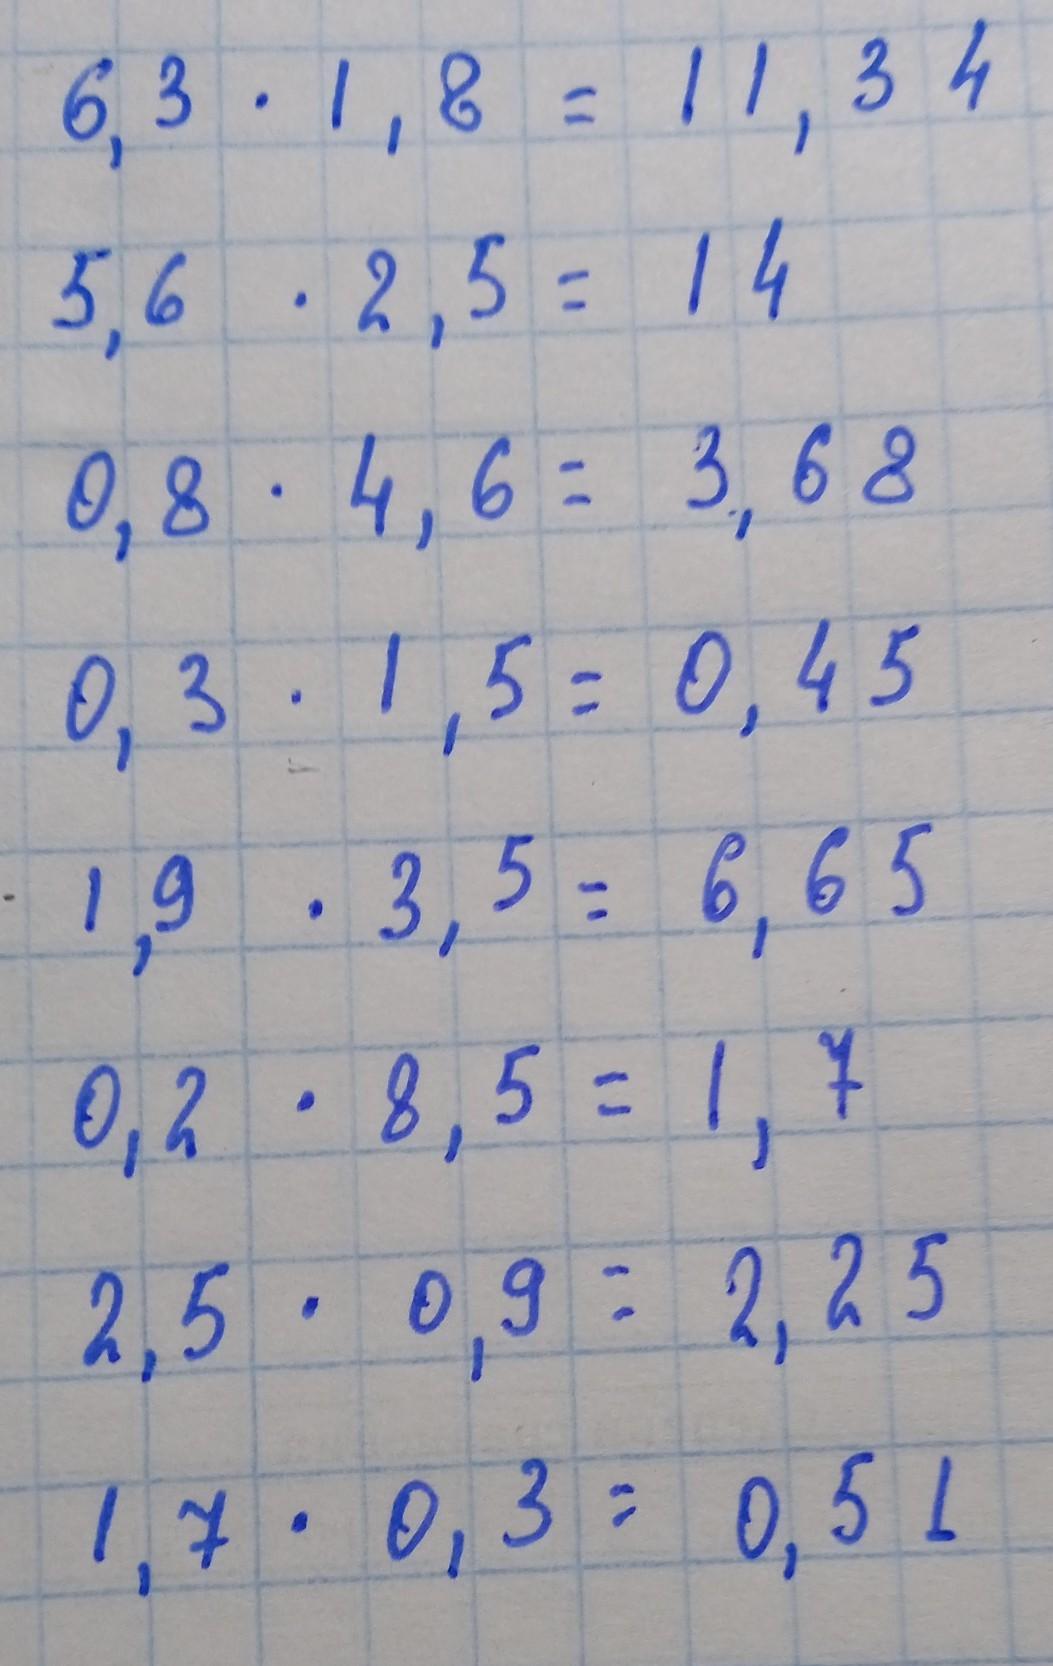 6,3 · 1,8 = 11,34
5,6 · 2,5 = 14
0,8 · 4,6 = 3,68
0,3 · 1,5 = 0,45
1,9 · 3,5 = 6,65
0,2 · 8,5 = 1,7
2,5 · 0,9 = 2,25
1,7 · 0,3 = 0,51